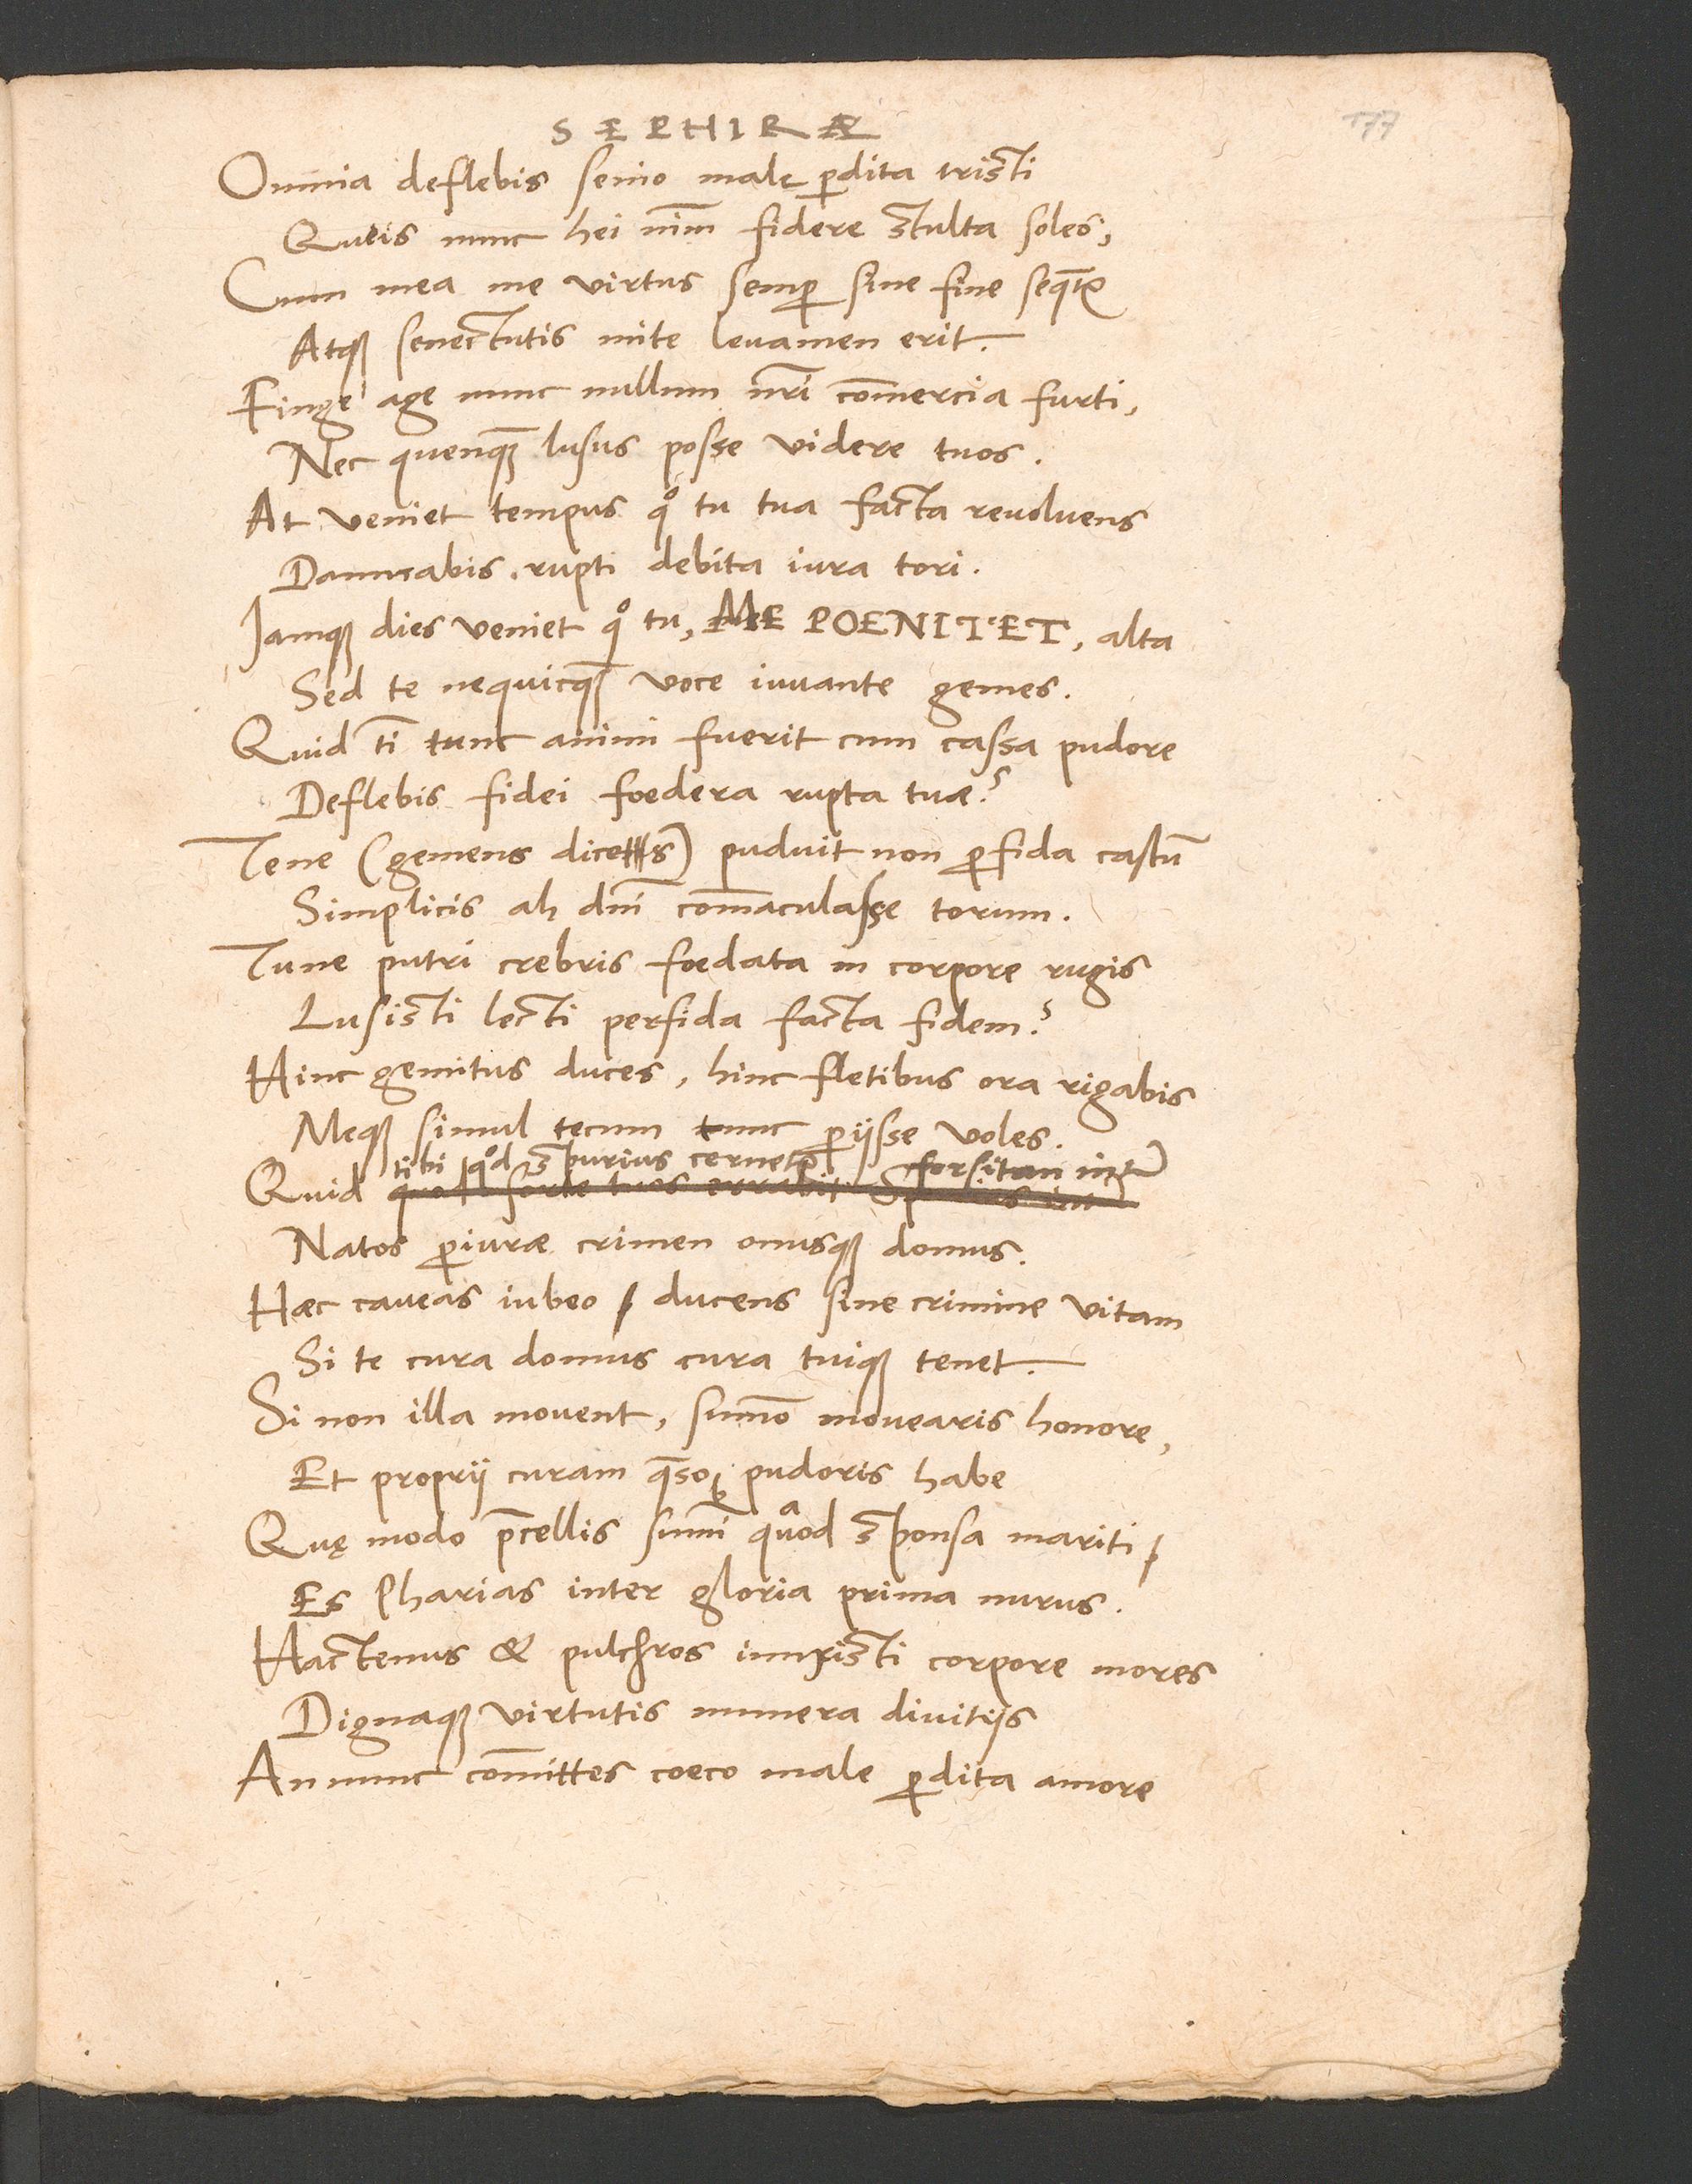 SEPHIRÆ
177
Omnia deflebis senio male ꝑdita tristi
Queis nunc hei nim̄ fidere stulta soles,
Cum mea me virtus semꝑ sine fine seq̄tur
Atqꝫ senectutis mite leuamen erit.
Finge age nunc nullum nr̄i com̄ercia furti,
Nec quenqꝫ lusus posse videre tuos.
At veniet tempus qͦ tu tua facta reuoluens
Damnabis rupti debita iura tori.
Jamqꝫ dies veniet qͦ tu, ME POENITET, alta
Sed te nequicqꝫ voce iuuante gemes.
Quid tī tunc animi fuerit cum cassa pudore
Deflebis fidei foedera rupta tuæ?
Tene (gemens dices) puduit non ꝑfida castū
Simplicis ah dn̄i com̄aculasse torum.
Tune putri crebris foedata in corpore rugis
Lusisti lecti perfida facta fidem?
Hinc gemitus duces, hinc fletibus ora rigabis
Meqꝫ simul tecum tunc ꝑijsse voles.
tibi qͦd spurius cernet forsitan int̄
Quid quod forte tuos errabit
Natos ꝑiuræ crimen onusqꝫ domus.
Hæc caueas iubeo ducens sine crimine vitam
Si te cura domus cura tuiqꝫ tenet.
Si non illa mouent, sum̄o mouearis honore,
Et proprij curam q̄so, pudoris habe
Quę modo p̄cellis sum̄i quod sponsa mariti
Es Pharias inter gloria prima nurus.
Hactenus & pulchros iunxisti corpore mores
Dignaqꝫ virtutis munera diuitijs
An nunc com̄ittes coeco male ꝑdita amore